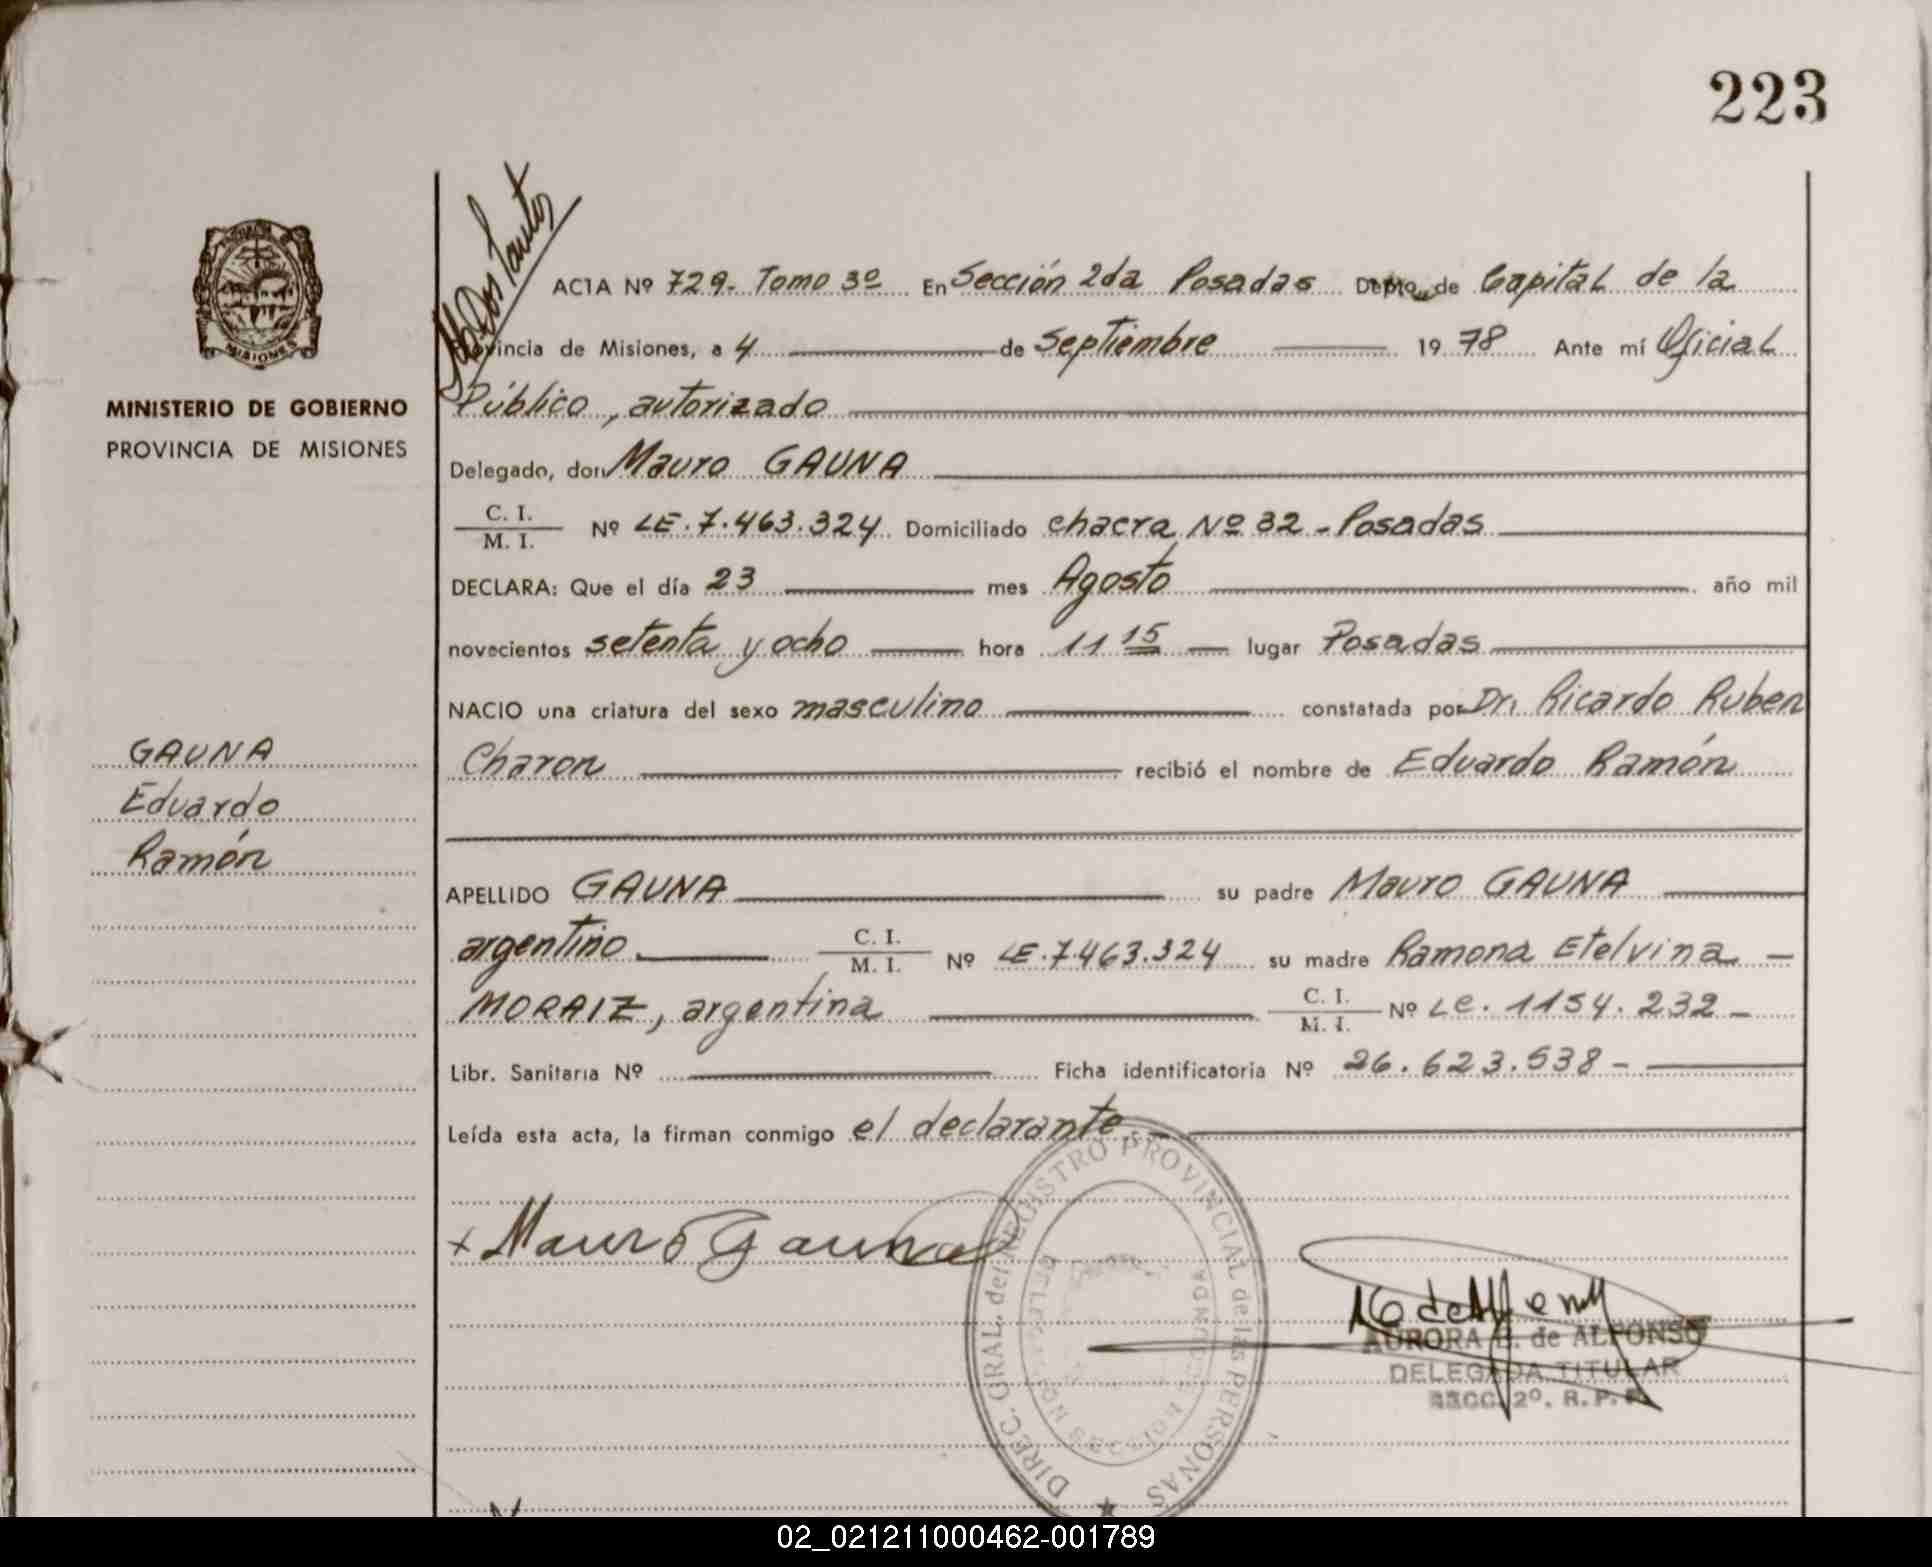 223
MISIONES
MINISTERIO DE GOBIERNO
PROVINCIA DE MISIONES
GAUNA
Eduardo
Ramón
Dos Santos
ACTA Nº 729- Tomo 3º En Sección 2da Posadas Depto. de Capital de la
Provincia de Misiones, a 4 de Septiembre 19 78 Ante mí Oficial
Público, autorizado
Delegado, don Mauro GAUNA
C. I.
M. I. Nº LE. 7.463.324 Domiciliado chacra Nº 32 - Posadas
DECLARA: Que el día 23 mes Agosto año mil
novecientos setenta y ocho hora 11 15 lugar Posadas
NACIO una criatura del sexo masculino constatada por Dr. Ricardo Ruben
Charon recibió el nombre de Eduardo Ramón
APELLIDO GAUNA su padre Mauro GAUNA
argentino C. I.
M. I. Nº LE. 7.463.324 su madre Ramona Etelvina -
MORAIZ, argentina C. I.
M. I. Nº LC. 1154.232 -
Libr. Sanitaria Nº Ficha identificatoria Nº 26.623.538 -
Leída esta acta, la firman conmigo el declarante -
+ Mauro Gauna
DIREC. GRAL. del REGISTRO PROVINCIAL de las PERSONAS
AURORA G. de ALFONSO
DELEGADA TITULAR
SECC. 2º. R. P. P.
02_021211000462-001789